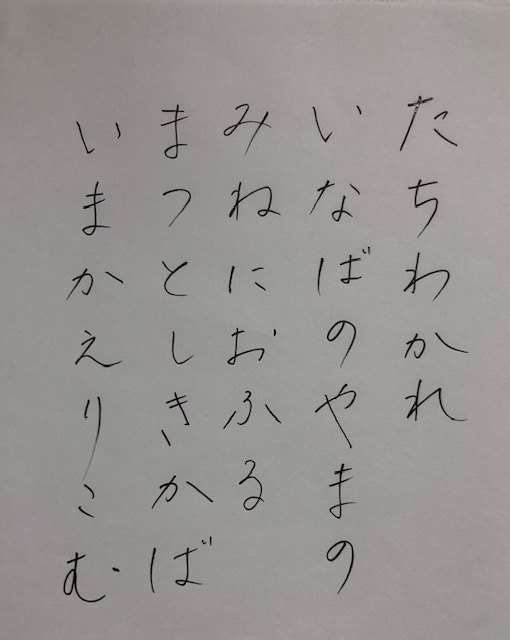 たちわかれ
いなばのやまの
みねにおふる
まつとしきかば
いまかえりこむ